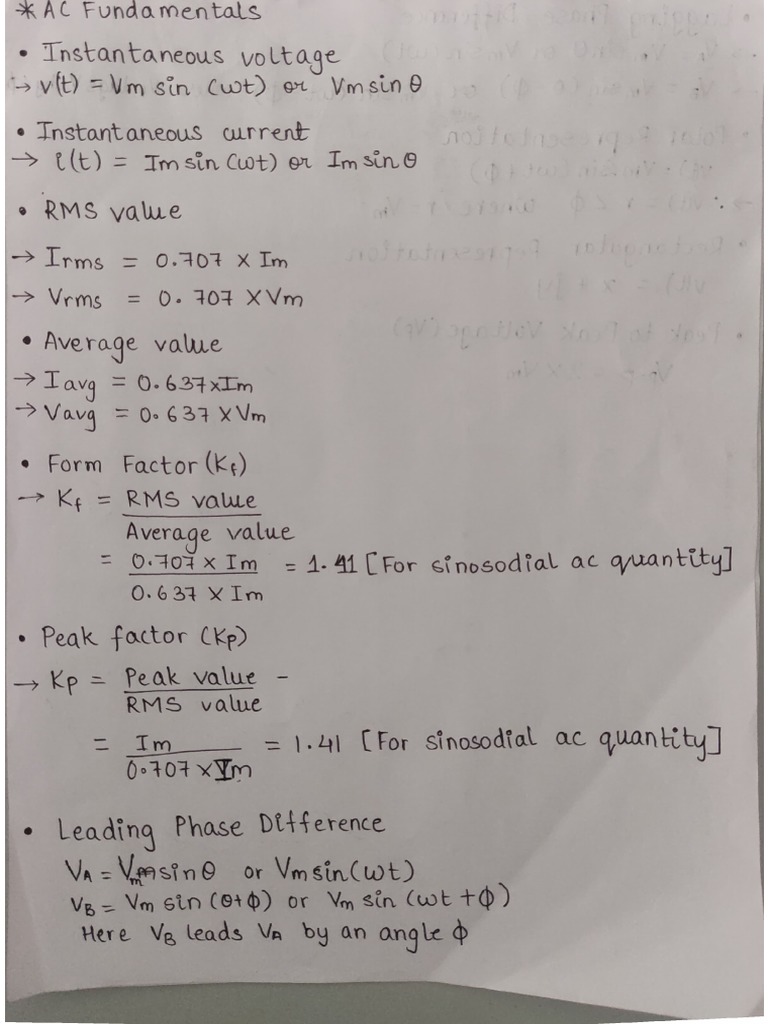 * AC Fundamentals
• Instantaneous voltage
→ v(t) = Vm sin (ωt) or Vm sin θ
• Instantaneous current
→ i(t) = Im sin (ωt) or Im sin θ
• RMS value
→ Irms = 0.707 X Im
→ Vrms = 0.707 X Vm
• Average value
→ Iavg = 0.637 x Im
→ Vavg = 0.637 X Vm
• Form Factor (Kf)
→ Kf = RMS value
Average value
= 0.707 x Im = 1.41 [For sinosodial ac quantity]
0.637 X Im
• Peak factor (Kp)
→ Kp = Peak value -
RMS value
= Im = 1.41 [For sinosodial ac quantity]
0.707 x Im
• Leading Phase Difference
VA = Vm sin θ or Vm sin (ωt)
VB = Vm sin (θ+ϕ) or Vm sin (ωt + ϕ)
Here VB leads VA by an angle ϕ